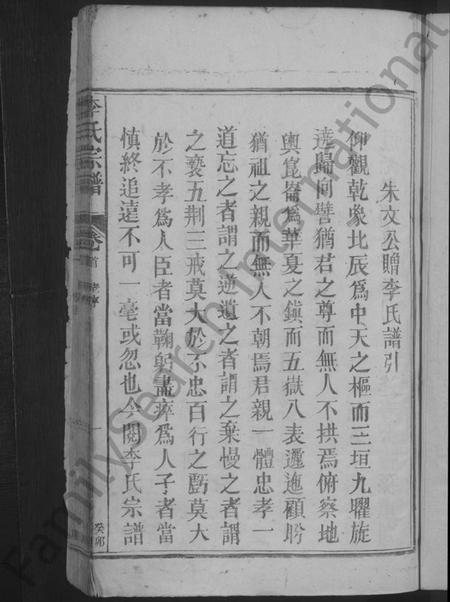 朱文公贈李氏譜引
仰觀乾象北辰為中天之樞而三垣九曜旋
遶歸向譬猶君之尊而無人不拱焉俯察地
輿崑崙為華夏之鎮而五嶽八表邐迤顧盻
猶祖之親而無人不朝焉君親一體忠孝一
道忘之者謂之逆遺之者謂之棄慢之者謂
之褻五荆三戒莫大於不忠百行之虧莫大
於不孝為人臣者當鞠躬盡瘁為人子者當
慎終追遠不可一毫或忽也今閱李氏宗譜
李氏宗譜
卷首
一
癸卯
FamilySearch International